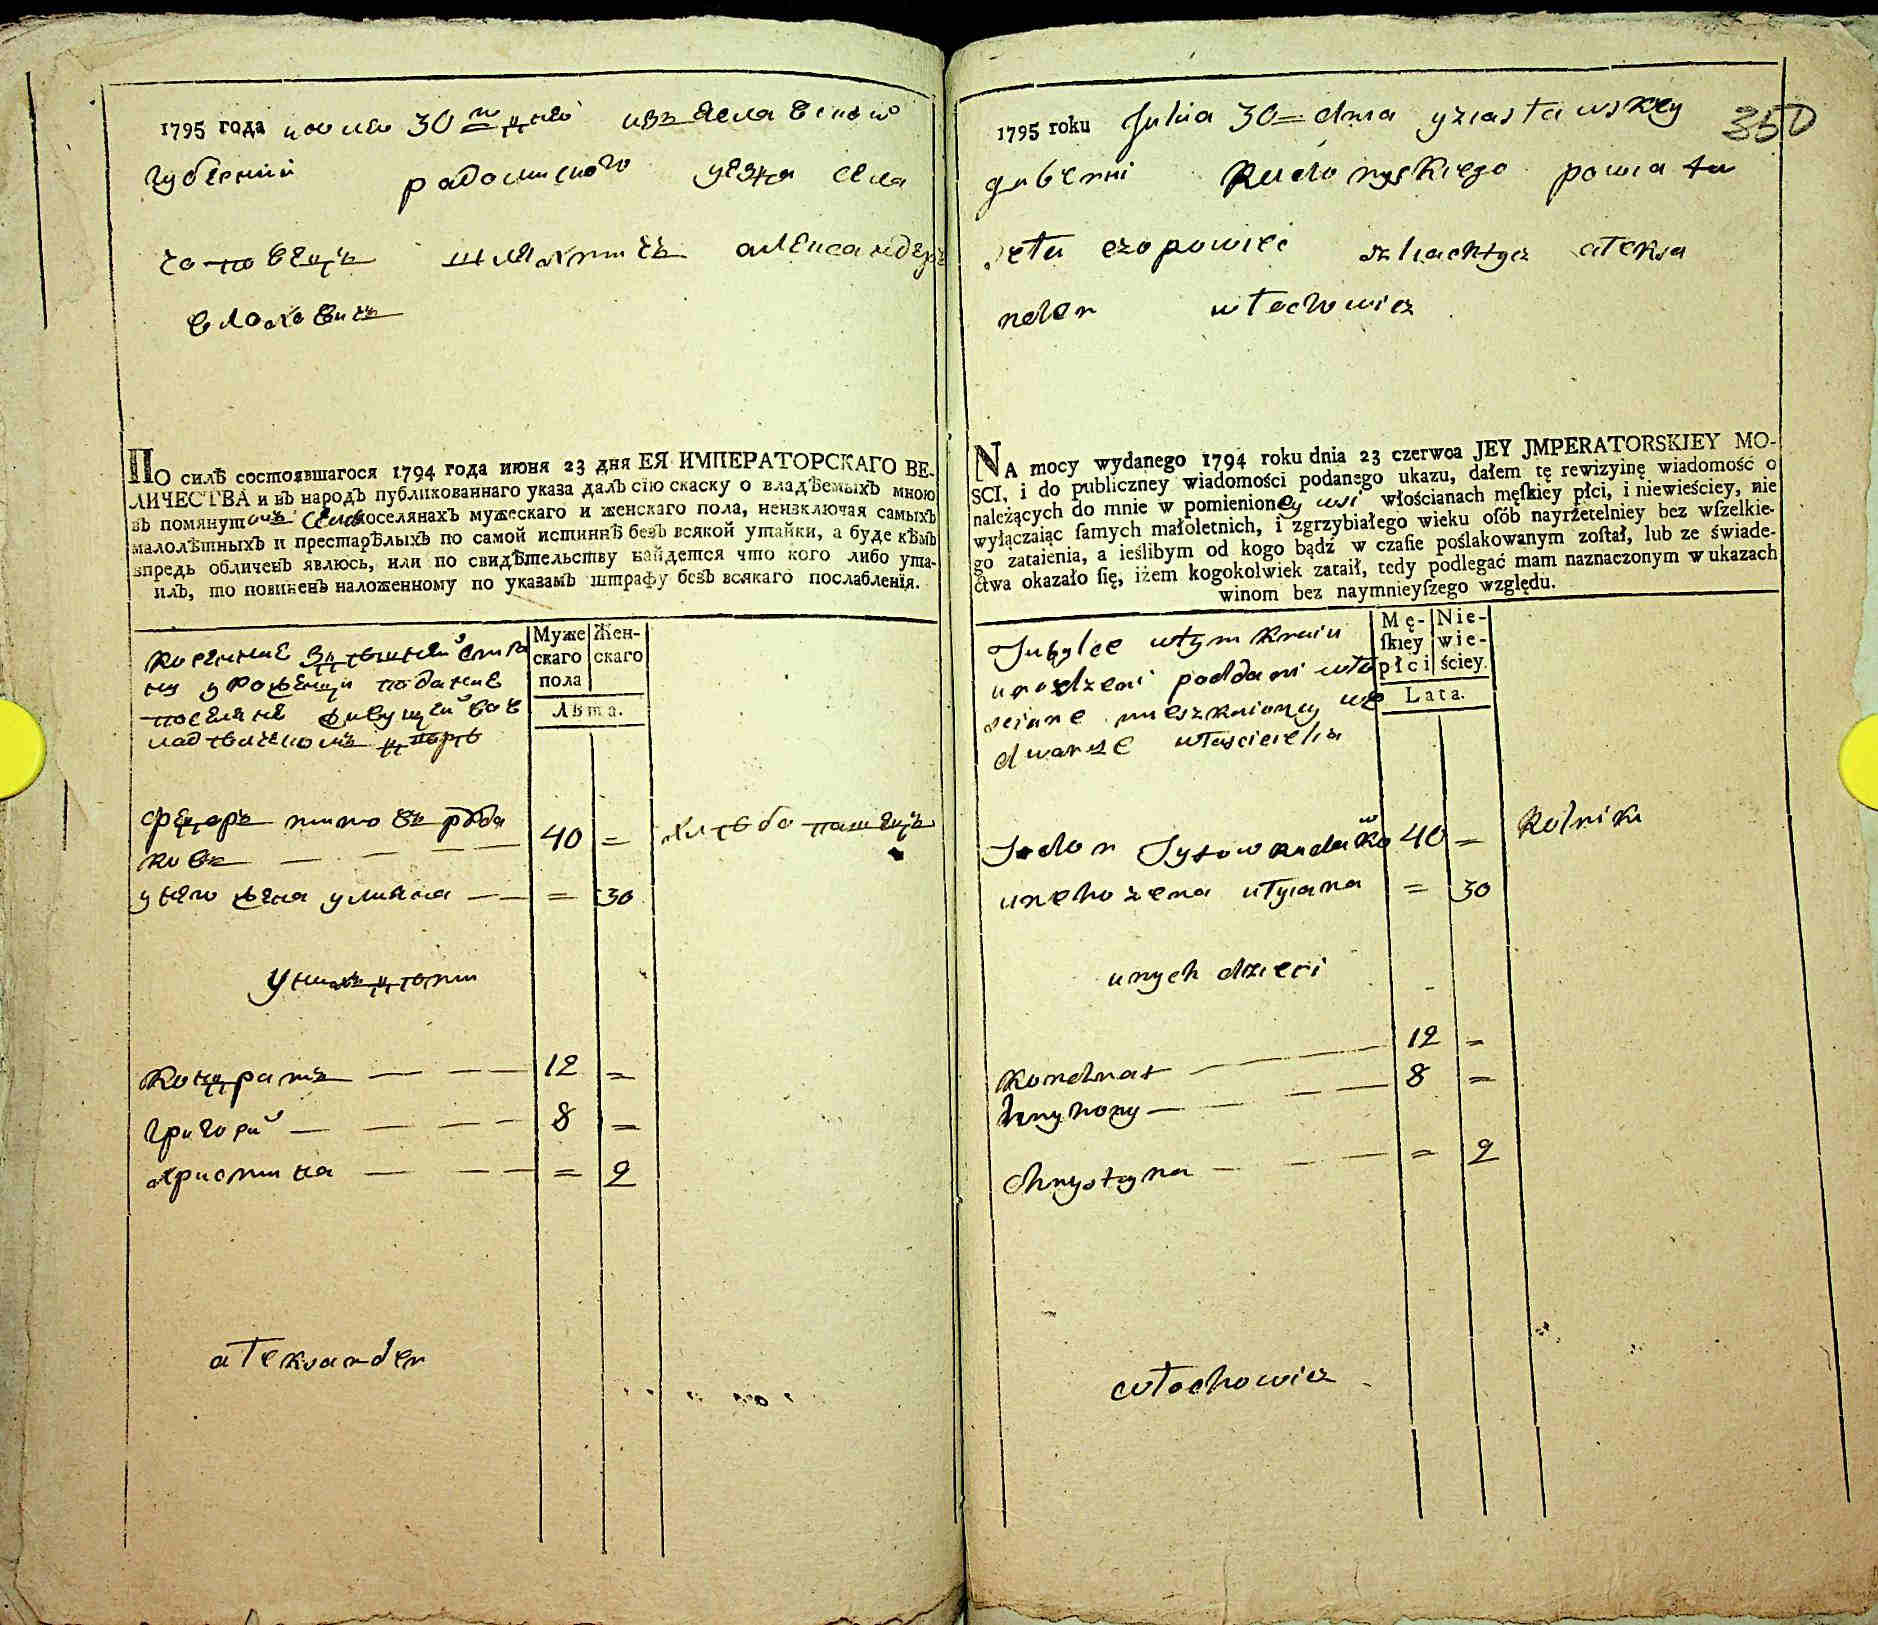 1795 года июля 30 дня изяславской
губернии радомиского уезда села
чоповець шляхтичъ александеръ
влоховичъ
ПО силѣ состоявшагося 1794 года июня 23 дня ЕЯ ИМПЕРАТОРСКАГО ВЕ-
ЛИЧЕСТВА и въ народъ публикованнаго указа далъ сїю скаску о владѣемыхъ мною
въ помянутомъ селѣ поселянахъ мужескаго и женскаго пола, неизключая самыхъ
малолѣтныхъ и престарѣлыхъ по самой истиннѣ безъ всякой утайки, а буде кѣмъ
впредь обличенъ явлюсь, или по свидѣтельству найдется что кого либо ута-
илъ, то повиненъ наложенному по указамъ штрафу безъ всякаго послабленїя.
Муже
скаго
пола
Жен-
скаго
Лѣта.
коренные въ тѣшней
уроженци поданые
поселяне живущей во
федоръ титовъ руда
ковъ — — — — 40 = хлѣбопашецъ
у него жена улияна — — = 30
у нихъ дѣти
кондратъ — — — 12 =
григорий — — — — 8 =
христина — — — — = 2
aleksander
350
1795 roku Julia 30 = dnia yziasławskey
guberni Radomyskiego powiatu
sela czopowiec szlachtycz aleksa
nder włochowicz
NA mocy wydanego 1794 roku dnia 23 czerwca JEY JMPERATORSKIEY MO-
SCI, i do publiczney wiadomości podanego ukazu, dałem tę rewizyinę wiadomość o
należących do mnie w pomienioney wsi włościanach męſkiey płci, i niewieściey, nie
wyłączaiąc ſamych małoletnich, i zgrzybiałego wieku oſób nayrzetelniey bez wſzelkie-
go zataienia, a ieślibym od kogo bądź w czaſie poślakowanym zoſtał, lub ze świade-
ctwa okazało ſię, iżem kogokolwiek zataił, tedy podlegać mam naznaczonym w ukazach
winom bez naymnieyſzego względu.
Mę-
ſkiey
płci
Nie-
wie-
ściey.
Lata.
Tubylce wtym kraiu
urodzeni poddani wło
sciane mieszkaiący we
dworze własciciela
Fedor Tytow rudako
w 40 = Rolnik
uneho żena ulyana = 30
unych dzieci
Kondrat — — — 12 =
hryhory — — — — 8 =
Chrystyna — — — — = 2
włochowicz